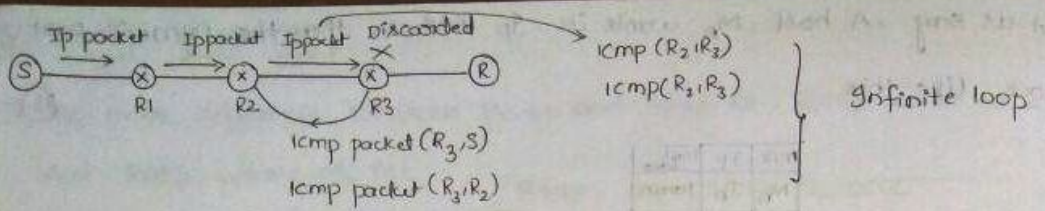 Ip packet Ippacket Ippackt Discarded
S R
R1 R2 R3
Icmp packet (R3,S)
Icmp packet (R3,R2)
icmp (R2,R3)
icmp (R2,R3)
Infinite loop